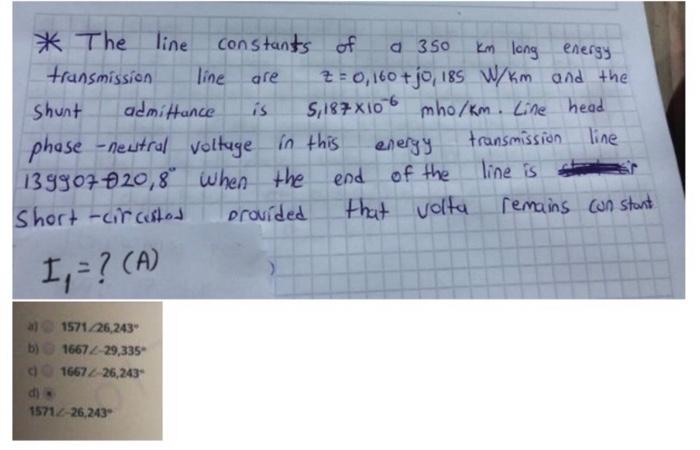 * The line constants of a 350 km long energy
transmission line are z = 0,160 + j0,185 W/km and the
shunt admittance is 5,187x10⁻⁶ mho/km. Line head
phase-neutral voltage in this energy transmission line
139907 20,8° when the end of the line is
Short-circuited provided that volta remains constant
I₁ = ? (A)
a) 1571∠26,243°
b) 1667∠-29,335°
c) 1667∠-26,243°
d)
1571∠-26,243°